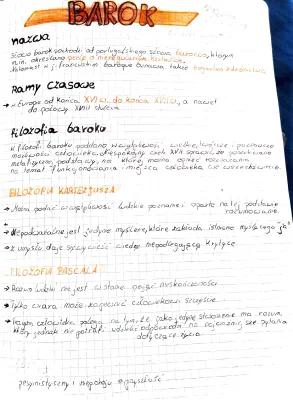 BAROK
nazwa
słowo barok pochodzi od portugalskiego słowa barocco, którym
m.in. określano perłę o nieregularnym kształcie.
Natomiast w j. francuskim baroque oznacza także
Ramy czasowe
→ w Europie od końca XVI w. do końca XVII w, a nawet
do połowy XVIII stulecia
filozofia baroku
W filozofii baroku poddano wątpliwości wiedzę,
możliwości człowieka. XVII
metafizyczne podstawy, na której można oprzeć rozważania
na temat funkcjonowania i miejsca człowieka we wszechświecie
FILOZOFIA KARTEZJUSZA
→ Można podać w wątpliwość ludzkie poznanie oparte na jej podstawie
rozumowanie.
→ Niepodważalne jest jedynie myślenie, które zakłada istnienie myślącego "ja"
→ z umysłu daje się wywieść wiedzę niepodlegającą krytyce
FILOZOFIA PASCALA
→ Rozum ludzki nie jest w stanie pojąć nieskończoności
→ Tylko wiara może zapewnić człowiekowi szczęście
→ Tragizm człowieka polega na tym, że jako jedyne stworzenie ma rozum,
który jednak nie potrafi udzielić odpowiedzi na najważniejsze pytania
dotyczące życia
pesymistyczny i niepokoju o przyszłość